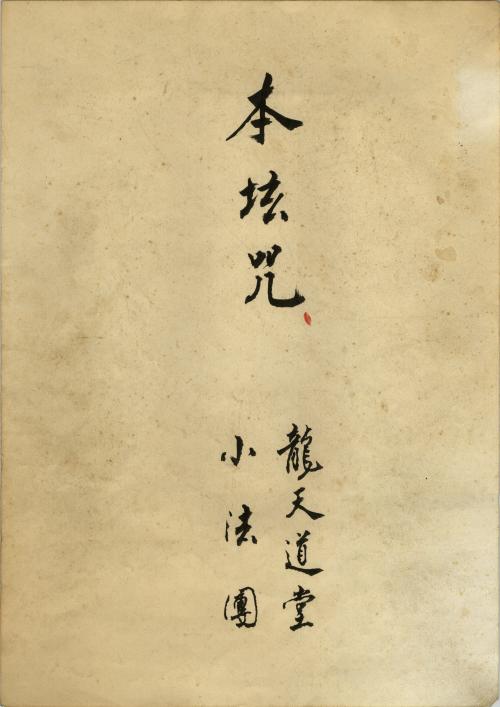 本坛咒
龍天道堂
小法團